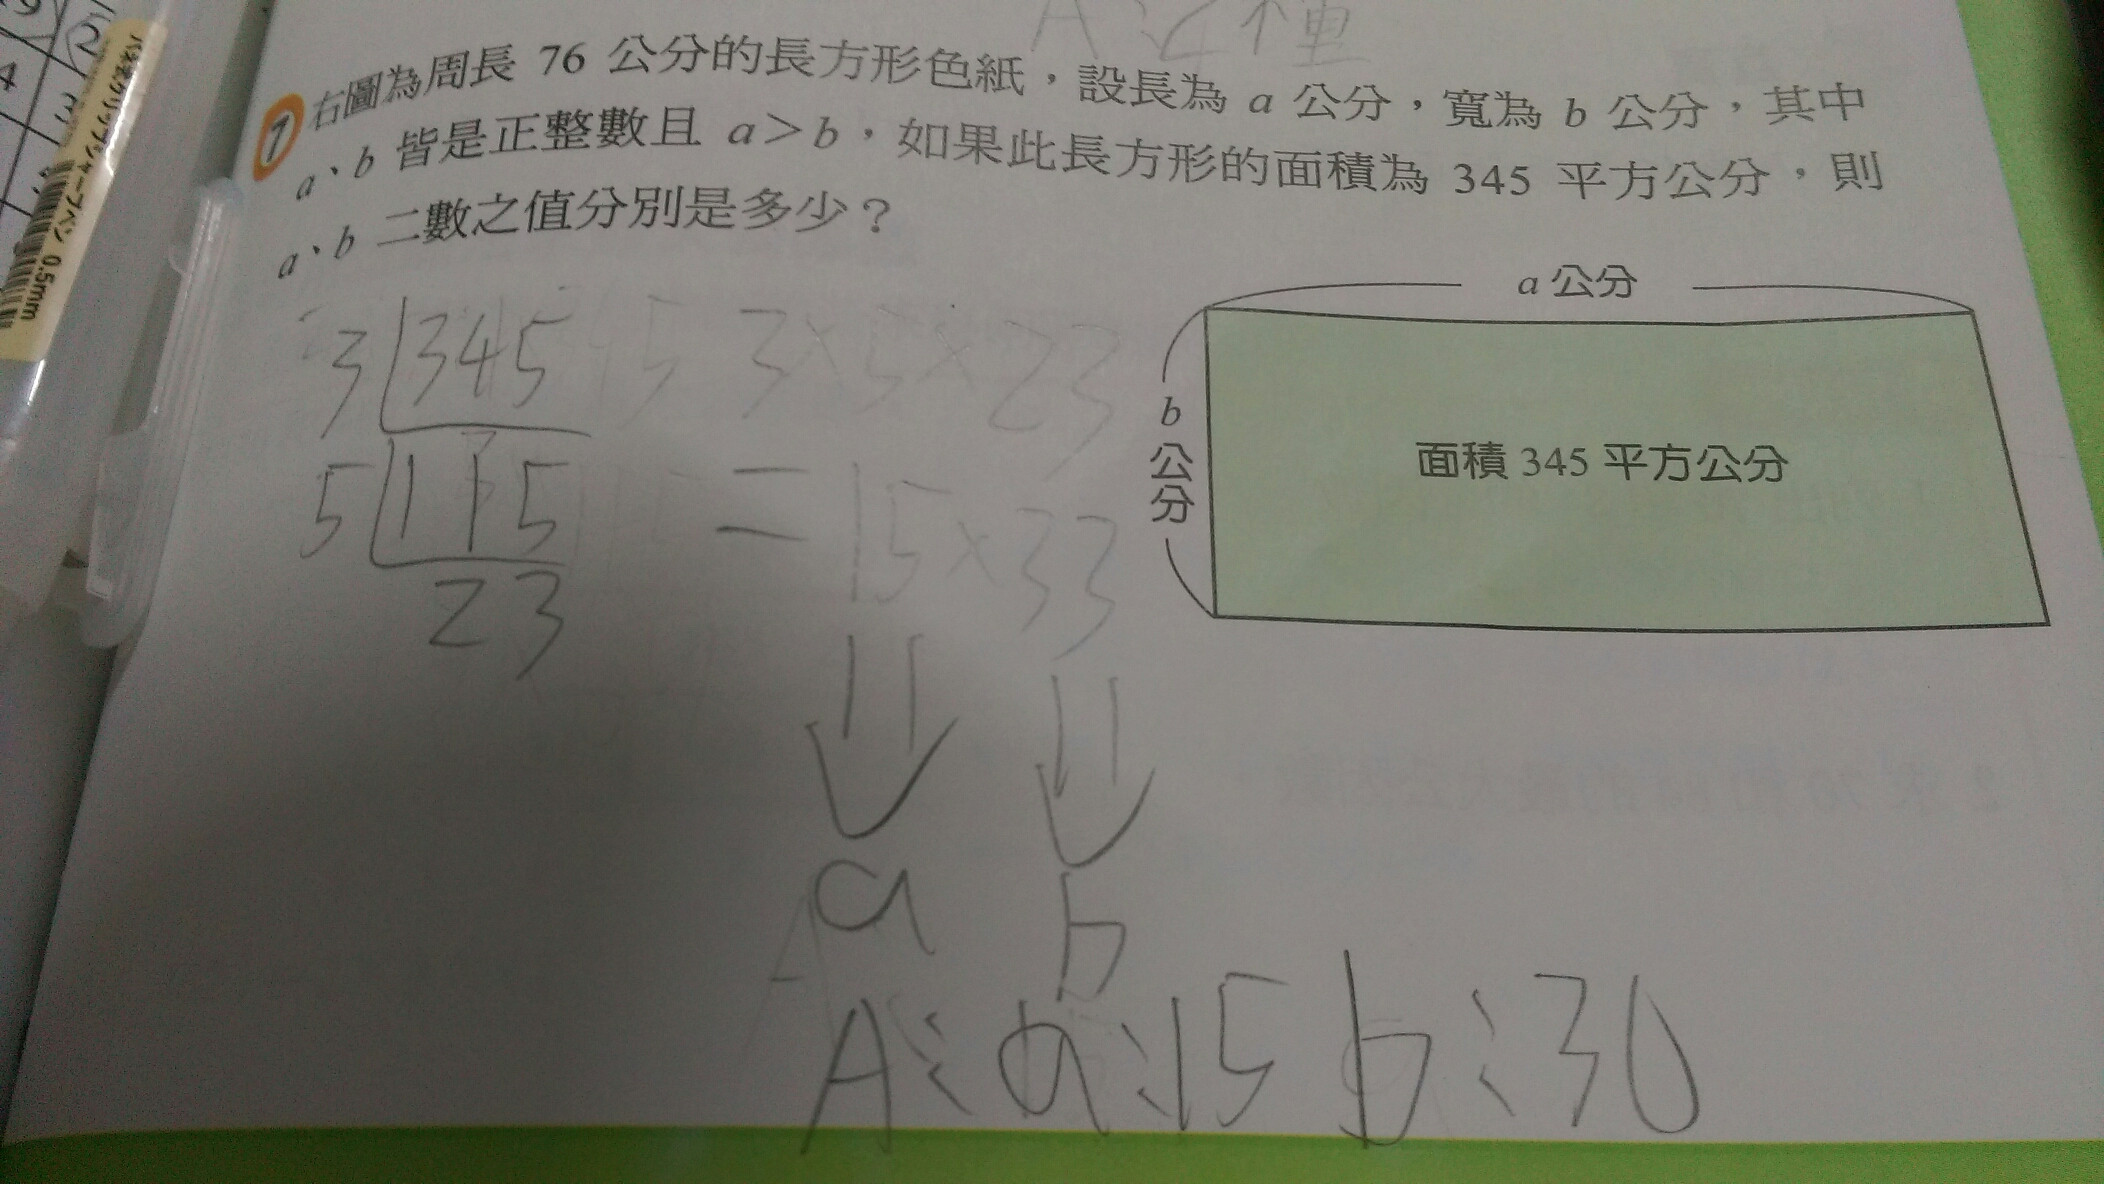 A:4種
7 右圖為周長 76 公分的長方形色紙，設長為 a 公分，寬為 b 公分，其中
a、b 皆是正整數且 a＞b，如果此長方形的面積為 345 平方公分，則
a、b 二數之值分別是多少？
a 公分
b 公分
面積 345 平方公分
3 345
5 115
23
3×5×23
=15×33
a b
A: a:15 b:30
0.5mm